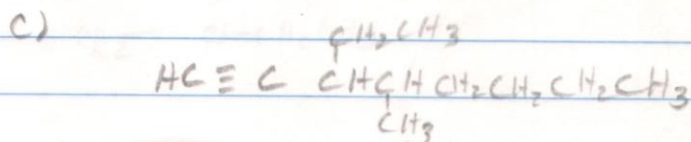 c)
CH₂CH₃
HC ≡ C CHCH CH₂CH₂CH₂CH₃
CH₃